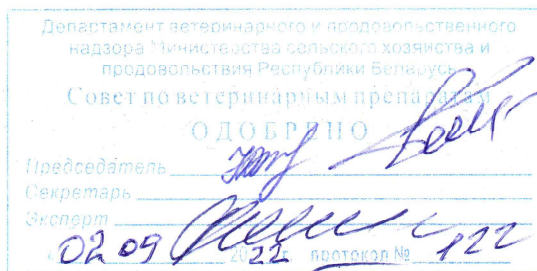 Департамент ветеринарного и продовольственного
надзора Министерства сельского хозяйства и
продовольствия Республики Беларусь
Совет по ветеринарным препаратам
ОДОБРЕНО
Председатель
Секретарь
Эксперт
02 09 2022 г. протокол № 122